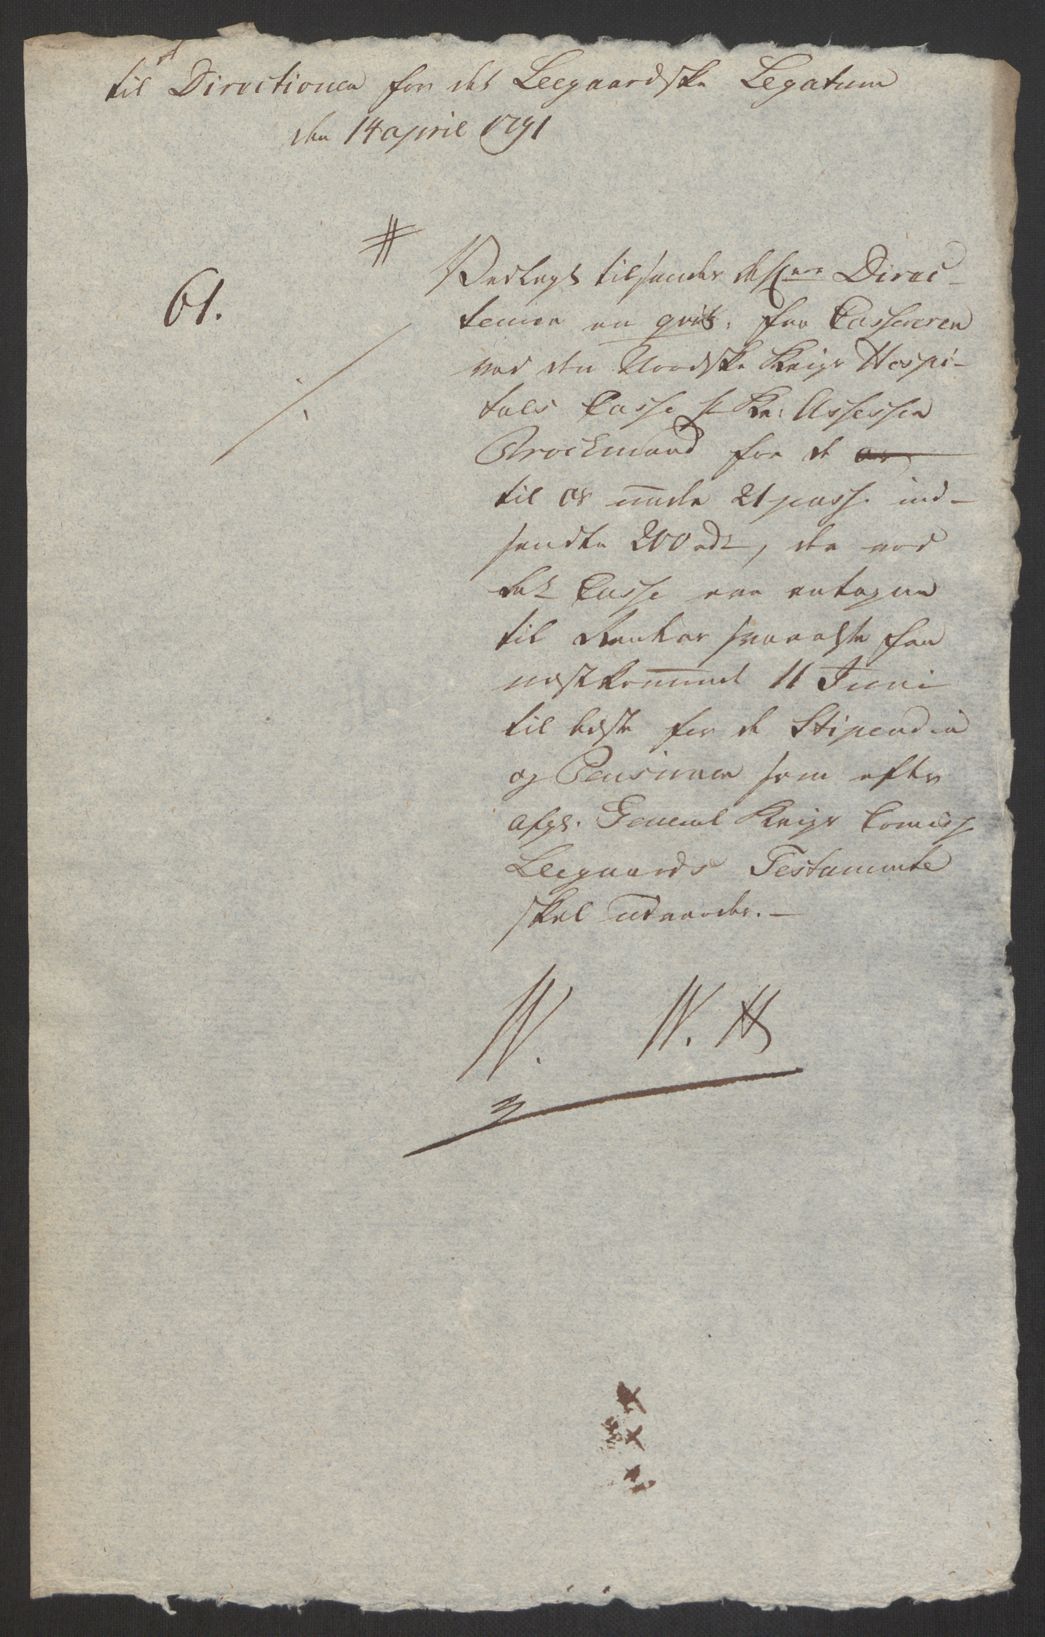 til Directionen for det Leegaardske Legatum
den 14 april 1791
61.
Vedlagt tilsendes Direc-
tionen en qvit: fra Casserern
ved den Nordske Krigs Hospi-
tals Casse Hr. Assessor
Brockmand for de
til os under 21 pass. ind-
sendte 200 rd, der ved
det Casse ere antagne
til Renters svarelse fra
næstkommend 11 Juni
til beste for de Stipendia
og Pensioner som efter
afgl. General Krigs Comiss
Leegaards Testamente
skal udreedes. —
W. W. H